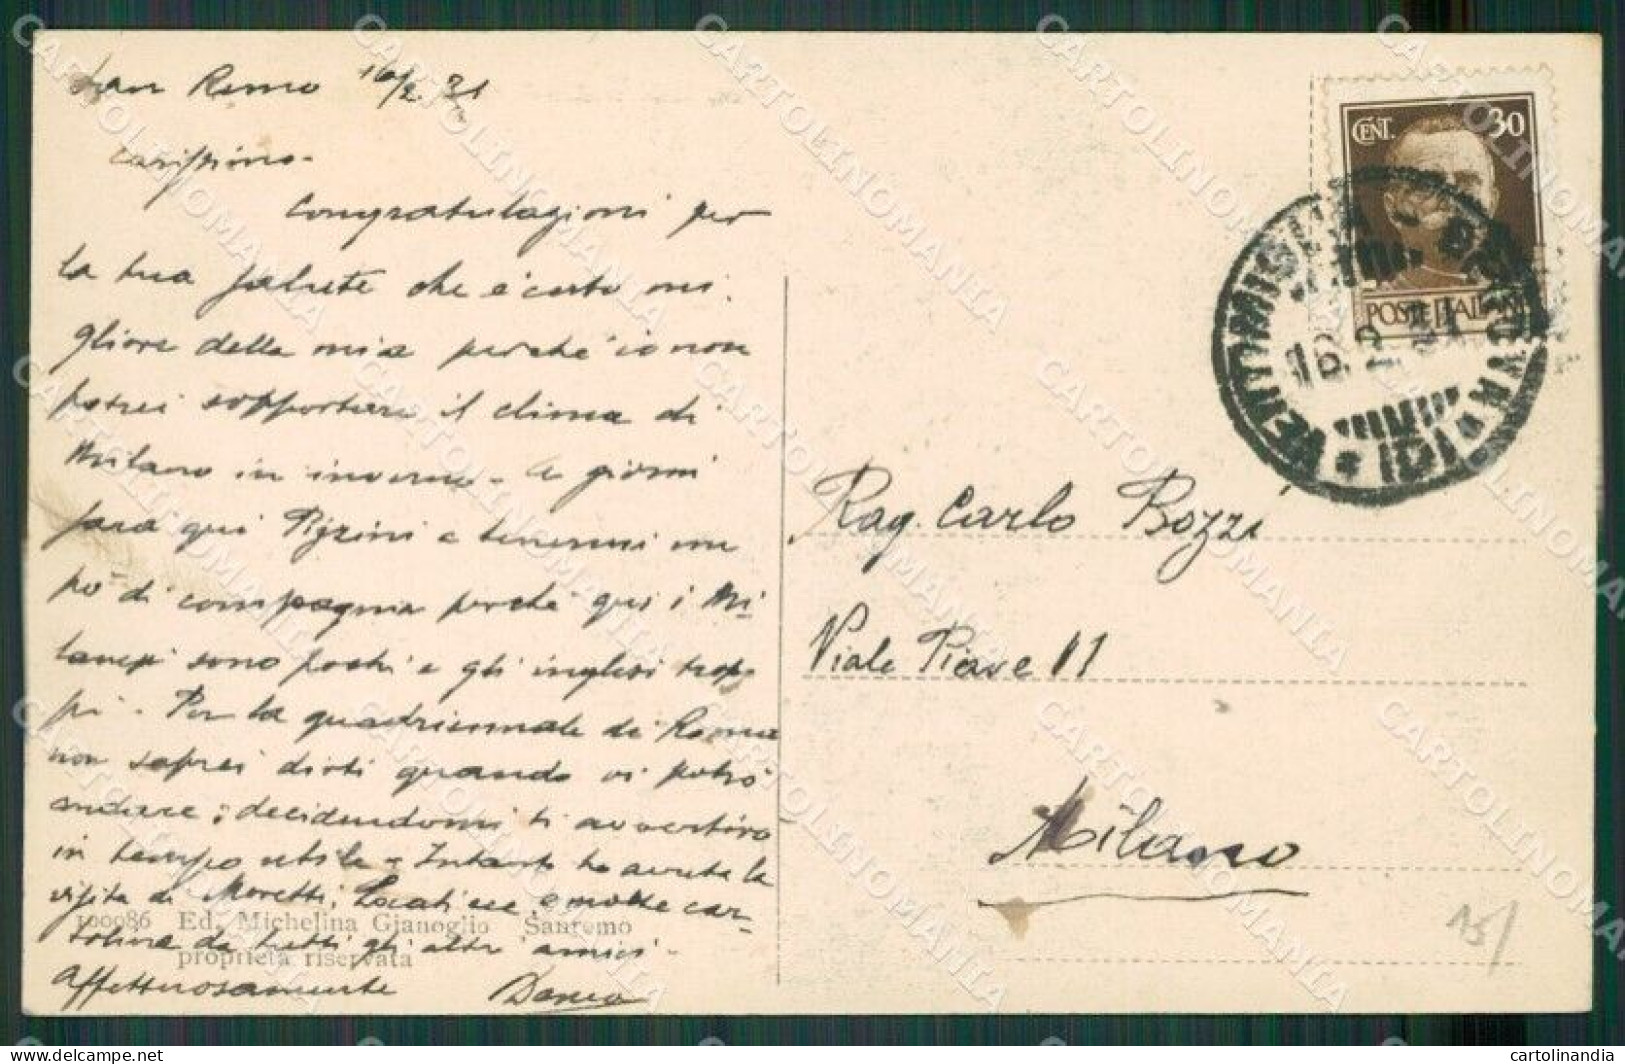 San Remo 16/2.31
Carissimo -
Congratulazioni per
la tua salute che è certo mi-
gliore della mia perchè io non
potrei sopportare il clima di
Milano in inverno - A giorni
sarà qui e tenermi un
pò di compagnia perchè qui i Mi-
lanesi sono pochi e gli inglesi trop-
pi - Per la quadriennale di Roma
non saprei dirti quando vi potrò
andare; decidendomi ti avvertirò
in tempo utile - Intanto ho avuta la
visita di Moretti, Locati ecc. e molte car-
toline da tutti gli altri amici -
affettuosamente
100086 Ed. Michelina Gianoglio Sanremo
proprietà riservata
CENT. 30
POSTE ITALIANE
VENTIMIGLIA - GENOVA
16.2.31
Rag. Carlo Bozzi
Viale Piave 11
Milano
15/
CARTOLINOMANIA
https://www.delcampe.net
cartolinandia